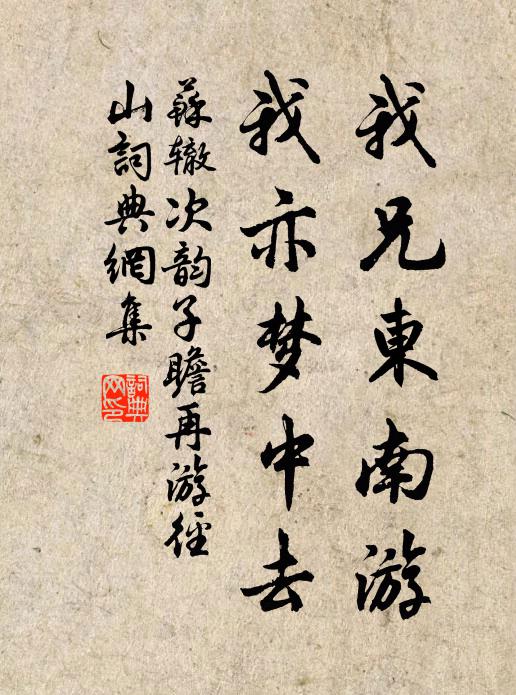 我兄東南游
我亦梦中去
蘇辙次韵子瞻再游徑
山詞典網集
詞典
网印